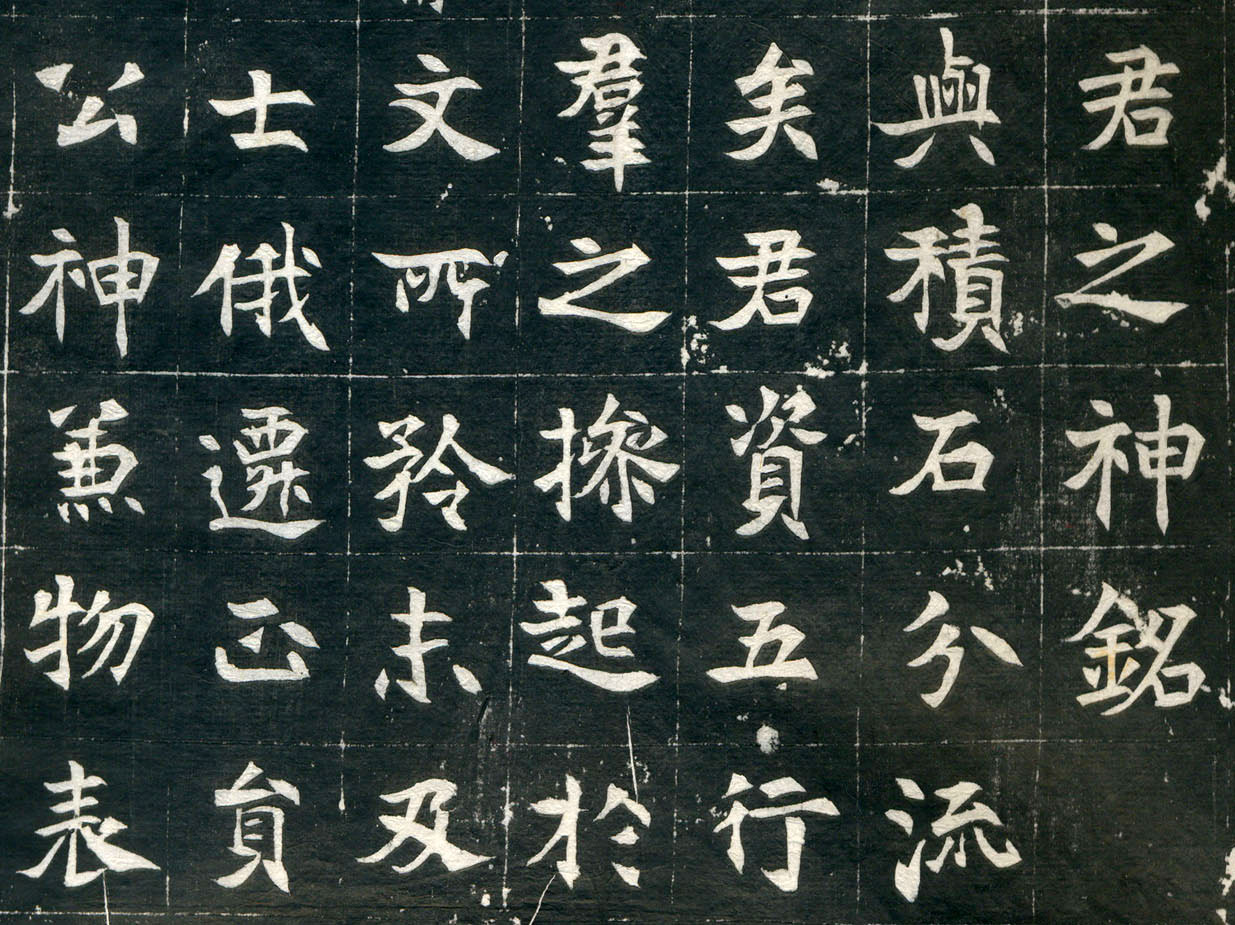 君之神銘
與積石分流
矣君資五行
羣之操起於
文所矜未及
士俄遷正員
公神兼物表